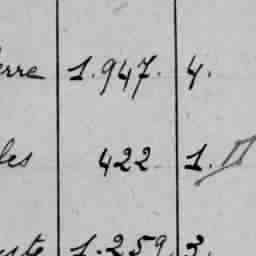 erre 1.947. 4.
les 422 1. II
ste 1.259. 3.